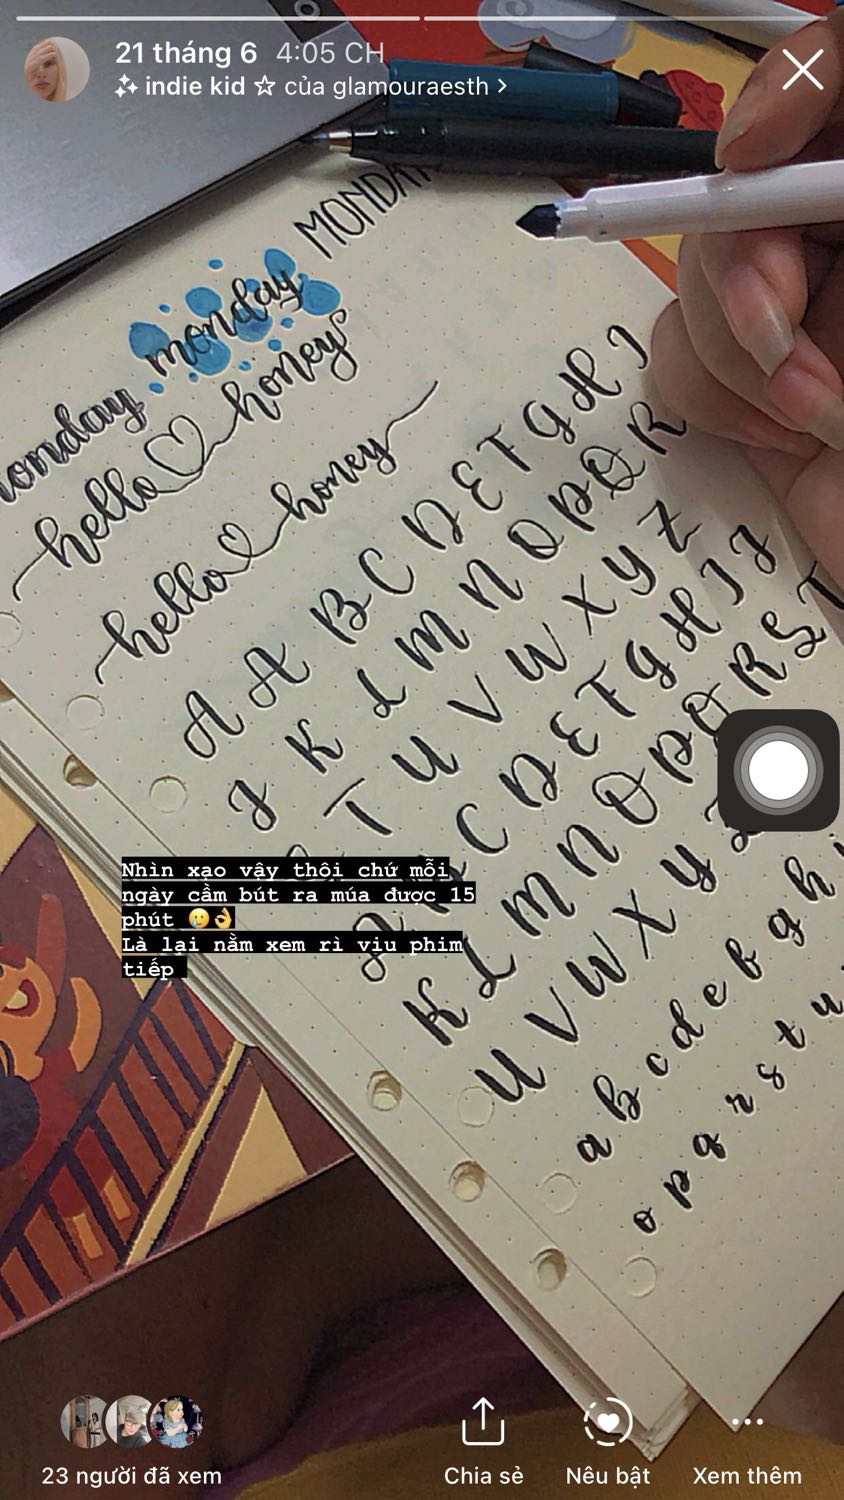 21 tháng 6 4:05 CH
indie kid ☆ của glamouraesth >
MONDAY
monday
monday
hello honey
hello honey
A A B C D E F G H I
J K L M N O P Q R
T U V W X Y Z
A B C D E F G H I J
K L M N O P Q R S T
U V W X Y Z
a b c d e f g h i
o p q r s t u
Nhìn xạo vậy thôi chứ mỗi
ngày cầm bút ra múa được 15
phút 🥲👌
Là lại nằm xem rì vịu phim
tiếp
23 người đã xem
Chia sẻ
Nêu bật
Xem thêm